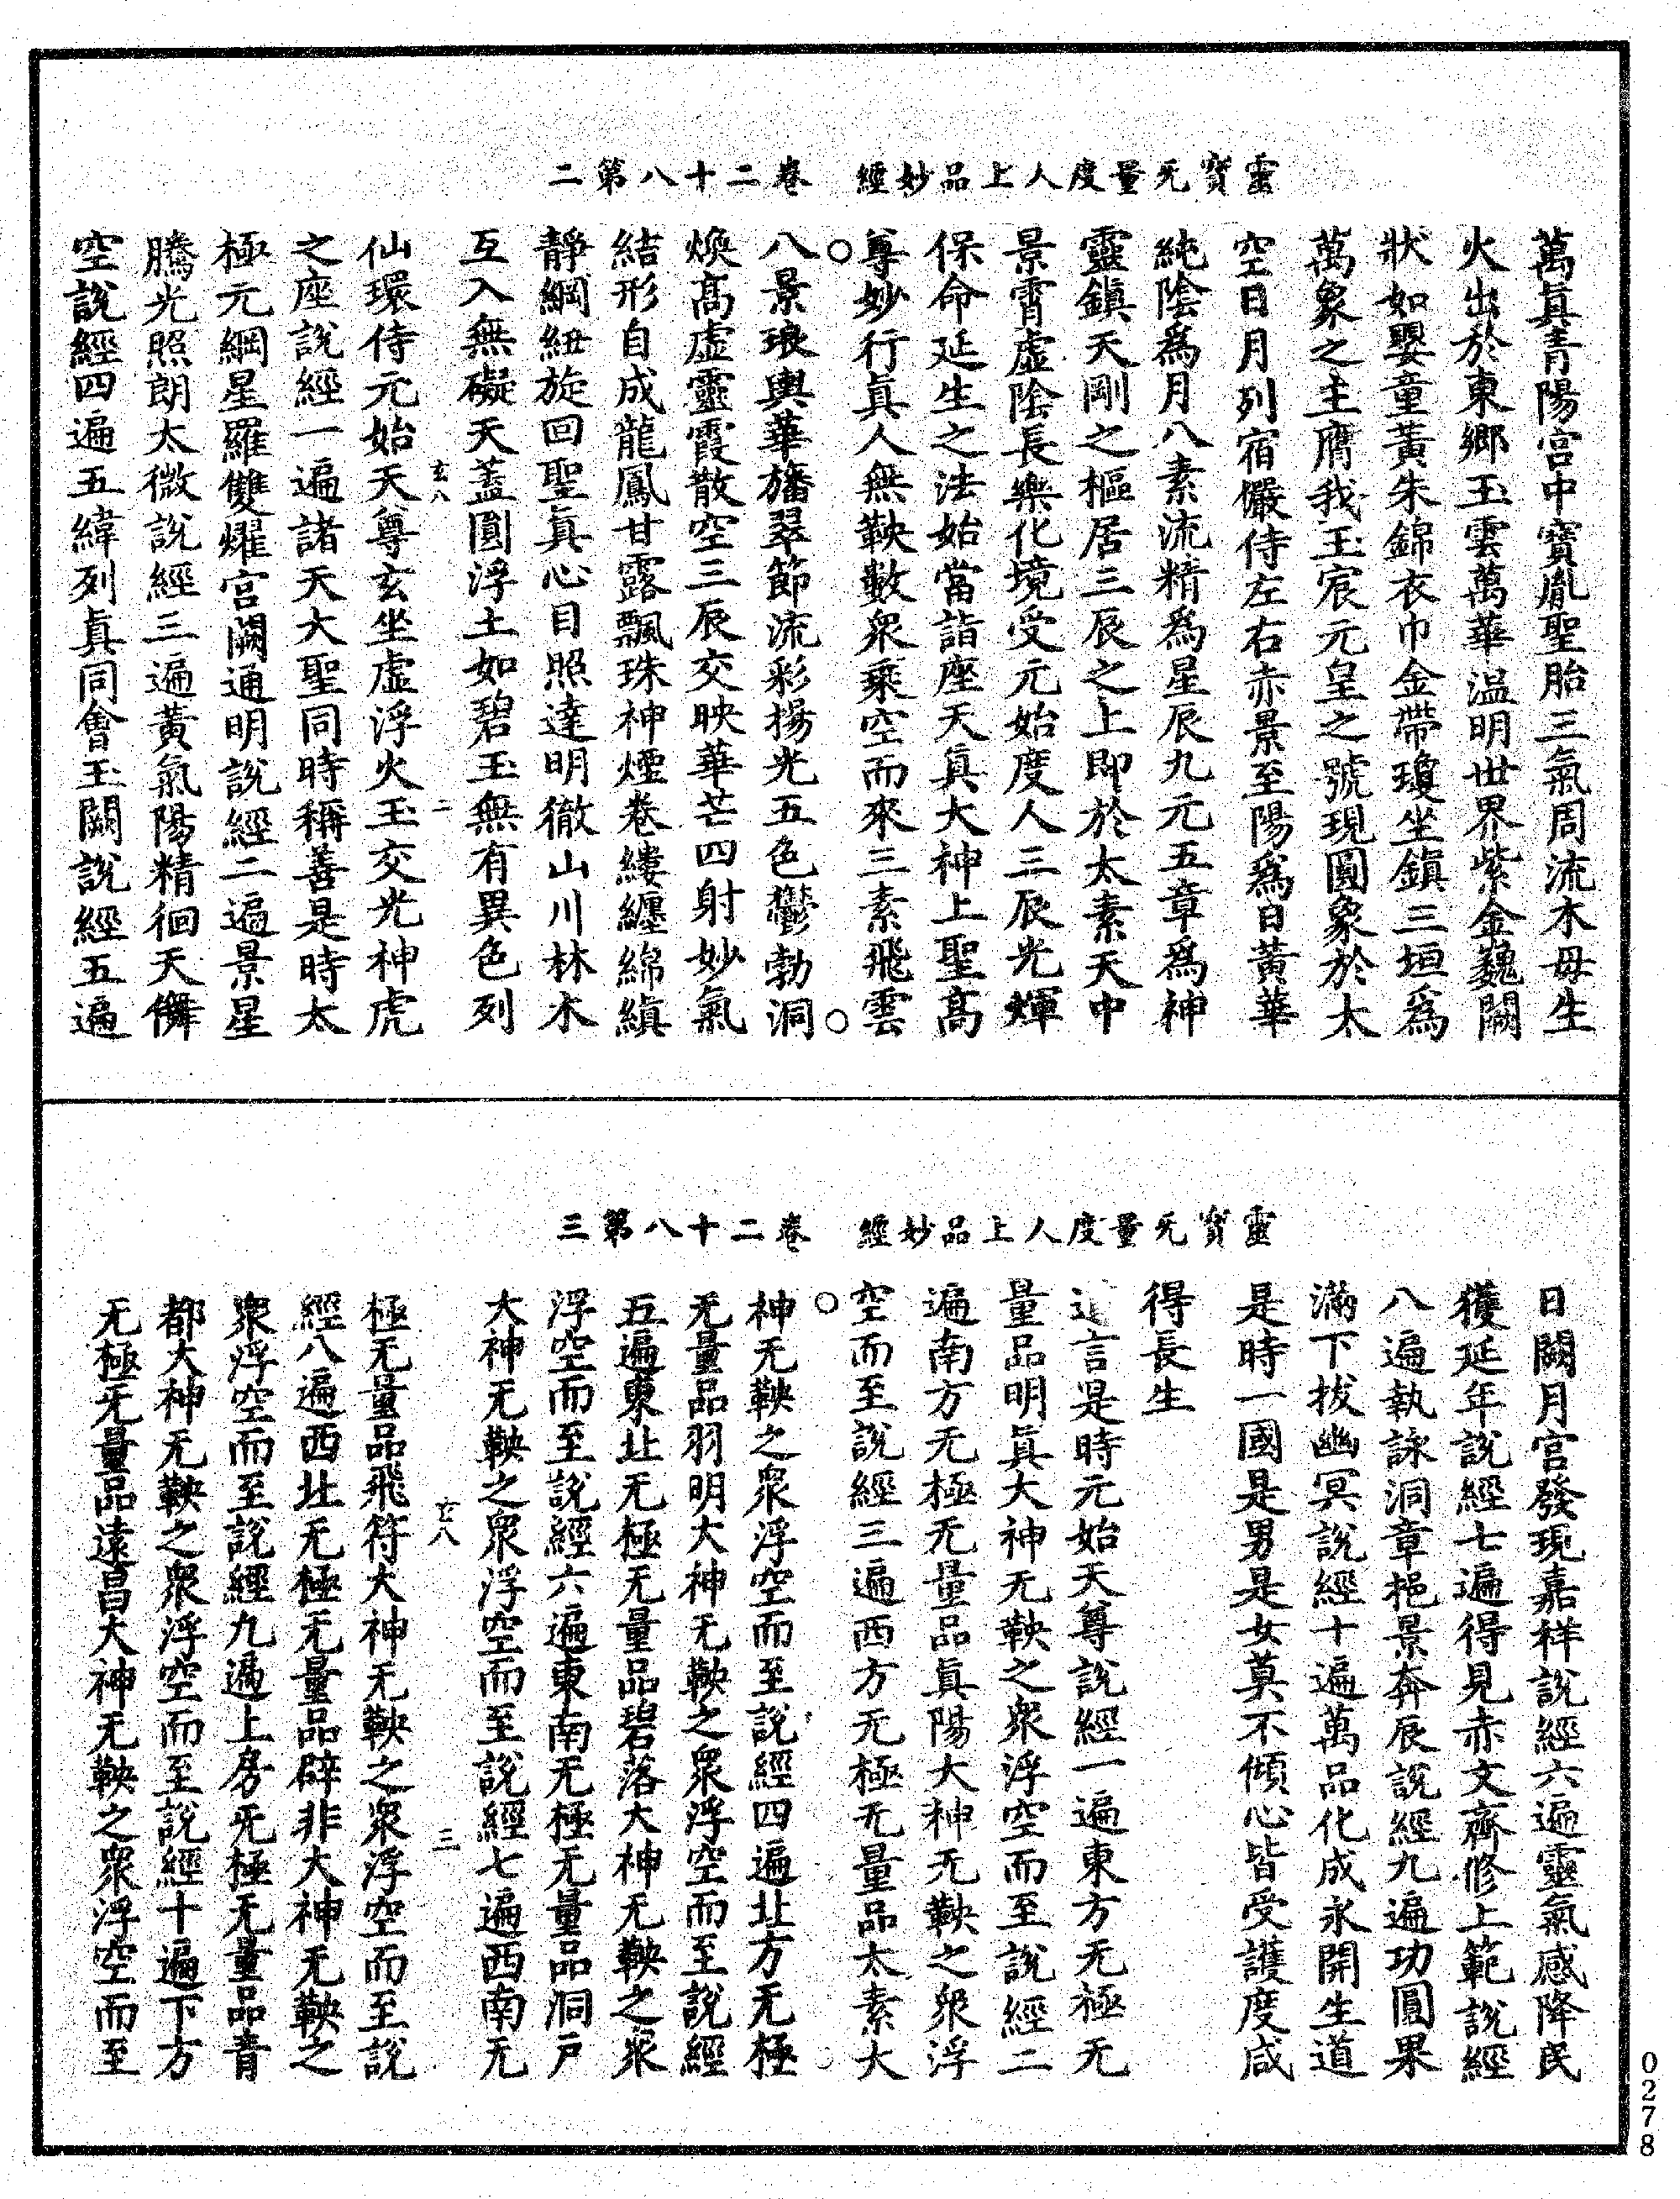 靈寶无量度人上品妙經　卷二十八第二
萬眞青陽宮中寶胤聖胎三氣周流木母生
火出於東鄉玉雲萬華温明世界紫金魏闕
狀如嬰童黃朱錦衣巾金帶瓊坐鎭三垣爲
萬象之主膺我玉宸元皇之號現圓象於太
空日月列宿儼侍左右赤景至陽爲日黃華
純陰爲月八素流精爲星辰九元五章爲神
靈鎭天剛之樞居三辰之上即於太素天中
景霄虛陰長樂化境受元始度人三辰光輝
保命延生之法始當詣座天眞大神上聖高
尊妙行眞人無鞅數衆乘空而來三素飛雲
八景琅輿華旛翠節流彩揚光五色鬱勃洞
煥高虛靈霞散空三辰交映華芒四射妙氣
結形自成龍鳳甘露飄珠神煙卷縷纏綿縝
靜綱紐旋回聖眞心目照達明徹山川林木
互入無礙天蓋圓浮土如碧玉無有異色列
玄八　二
仙環侍元始天尊玄坐虛浮火玉交光神虎
之座說經一遍諸天大聖同時稱善是時太
極元綱星羅雙耀宮闕通明說經二遍景星
騰光照朗太微說經三遍黃氣陽精徊天儛
空說經四遍五緯列眞同會玉闕說經五遍
靈寶无量度人上品妙經　卷二十八第三
日闕月宮發現嘉祥說經六遍靈氣感降民
獲延年說經七遍得見赤文齋修上範說經
八遍執詠洞章挹景奔辰說經九遍功圓果
滿下拔幽冥說經十遍萬品化成永開生道
是時一國是男是女莫不傾心皆受護度咸
得長生
道言是時元始天尊說經一遍東方无極无
量品明眞大神无鞅之衆浮空而至說經二
遍南方无極无量品眞陽大神无鞅之衆浮
空而至說經三遍西方无極无量品太素大
神无鞅之衆浮空而至說經四遍北方无極
无量品羽明大神无鞅之衆浮空而至說經
五遍東北无極无量品碧落大神无鞅之衆
浮空而至說經六遍東南无極无量品洞戶
大神无鞅之衆浮空而至說經七遍西南无
玄八　三
極无量品飛符大神无鞅之衆浮空而至說
經八遍西北无極无量品辟非大神无鞅之
衆浮空而至說經九遍上房无極无量品青
都大神无鞅之衆浮空而至說經十遍下方
无極无量品遠昌大神无鞅之衆浮空而至
0278